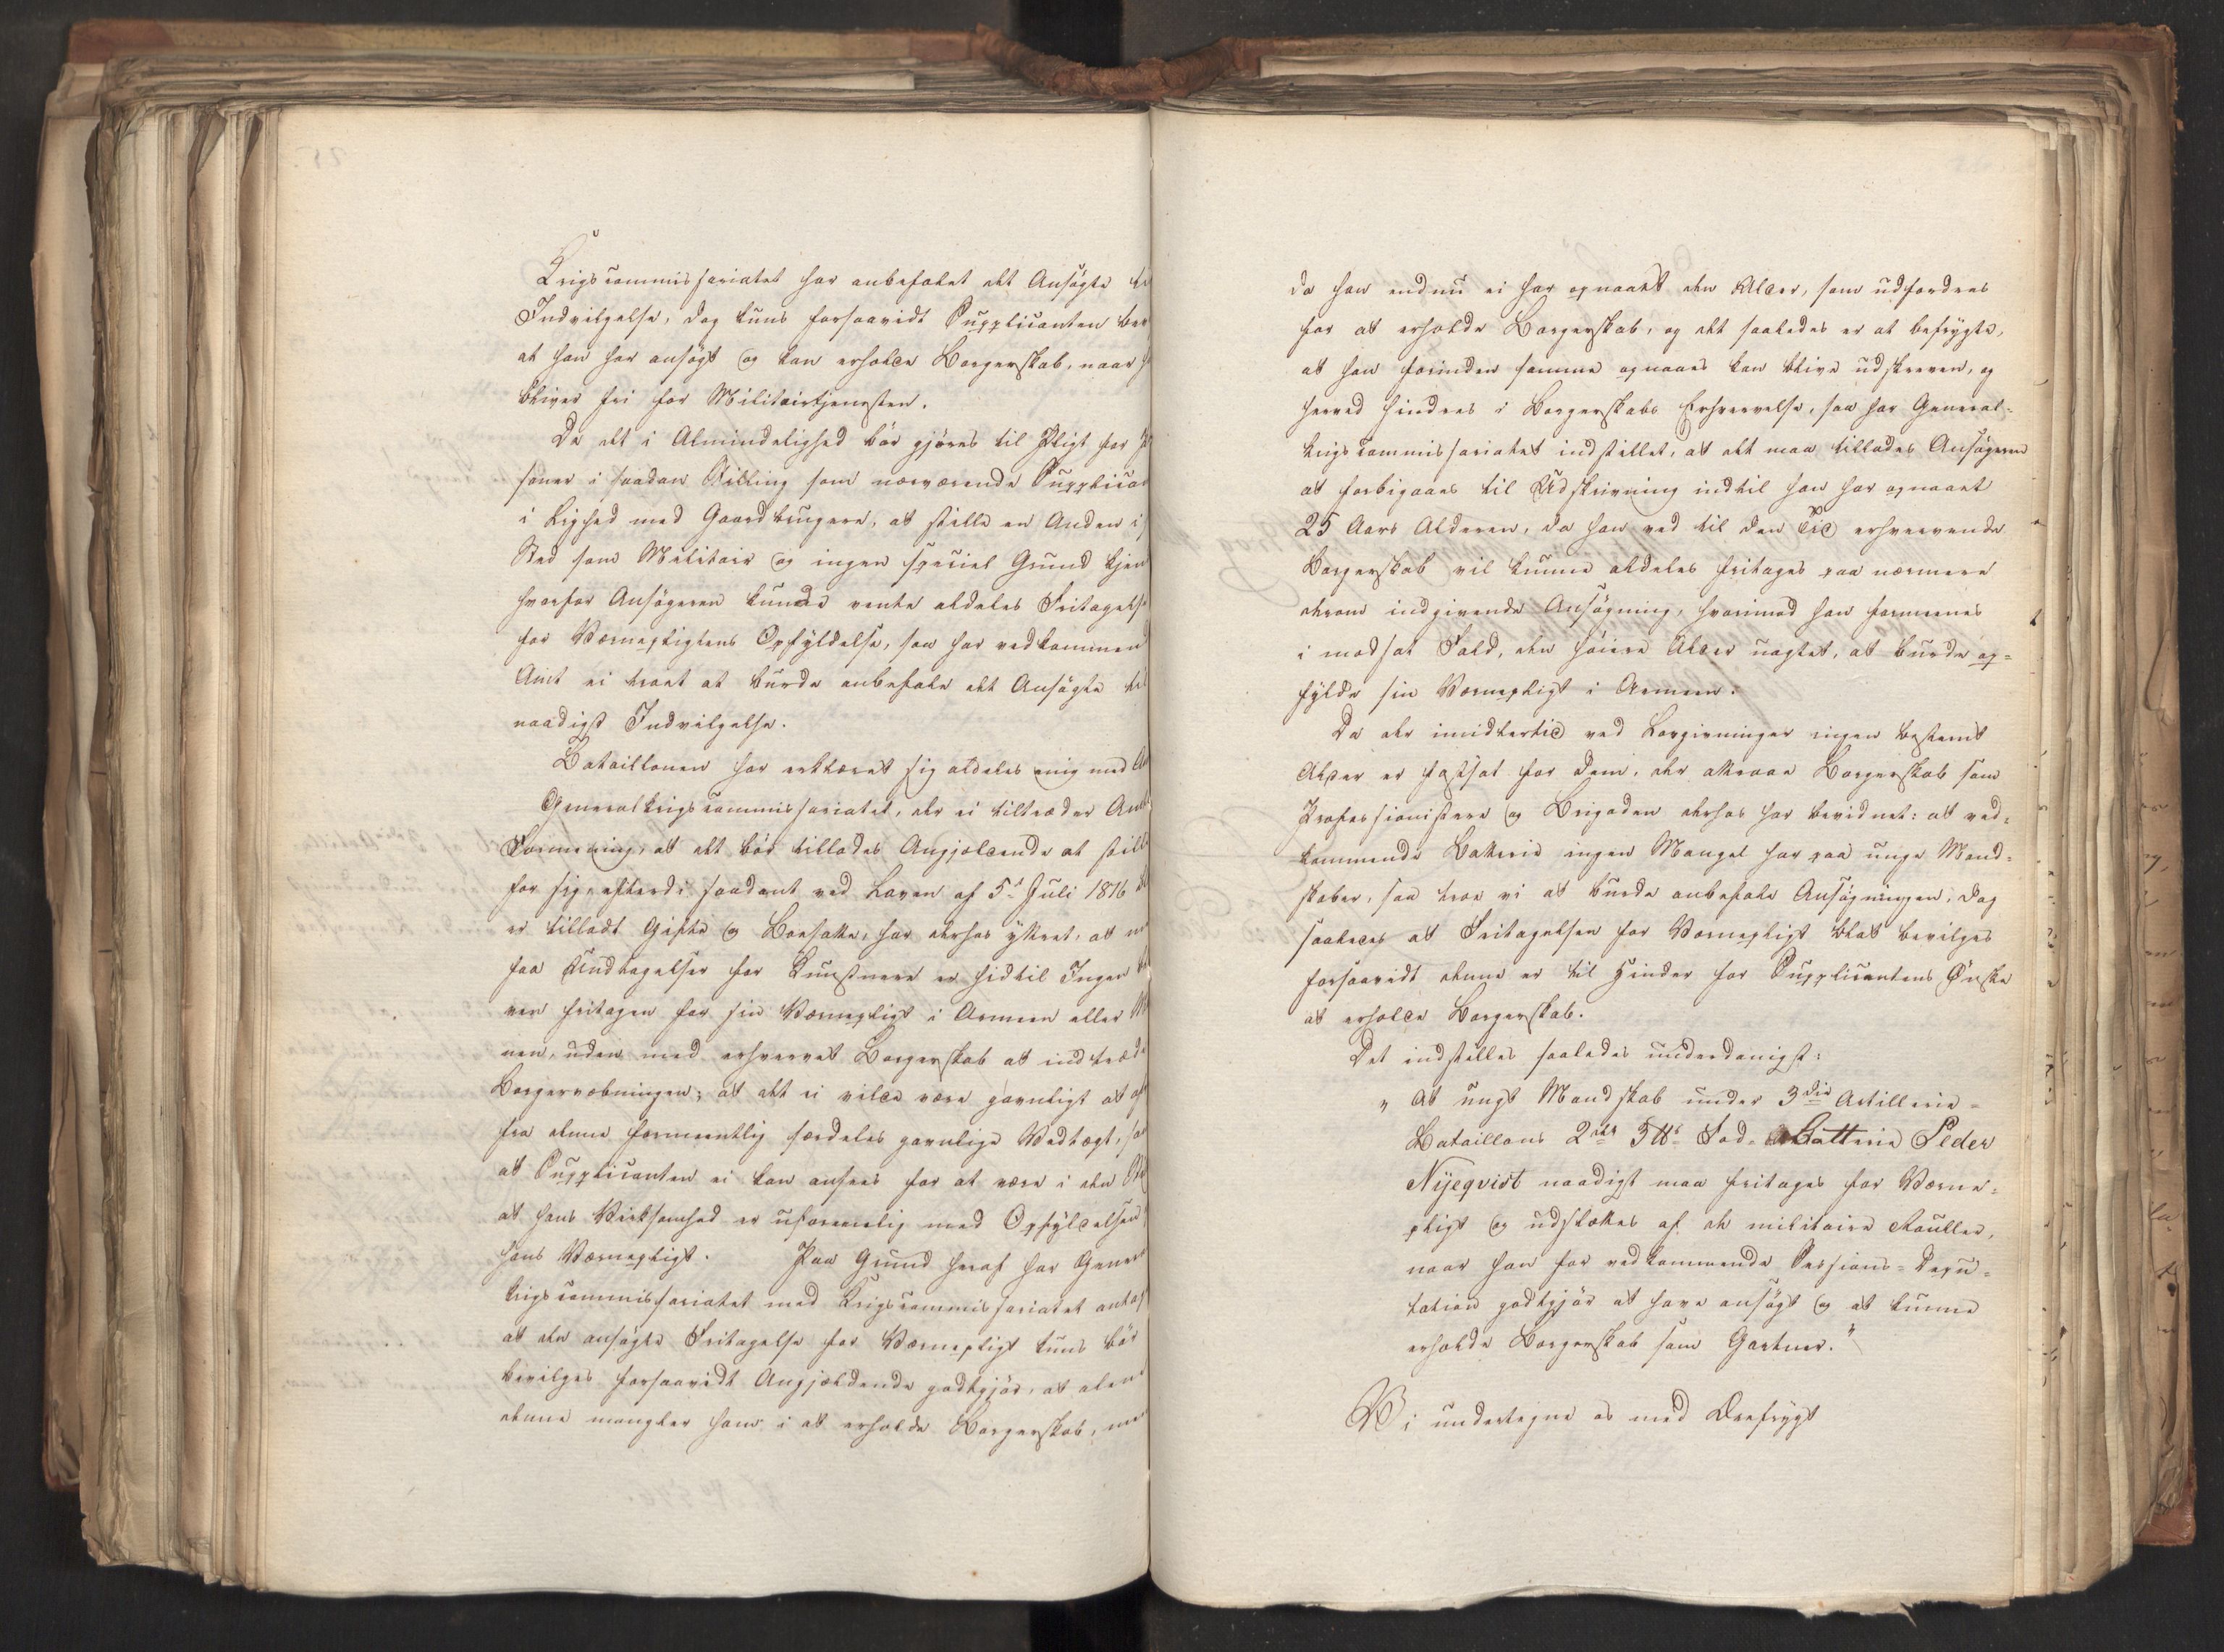 Krigscommissariatet har anbefalet det Ansøgte til
Indvilgelse, dog kuns forsaavidt Supplicanten bev
at han har ansøgt og kan erholde Borgerskab, naar h
bliver fri for Militairtjenesten.
Da det i Almindelighed bør gjøres til Pligt for P
soner i saadan Stilling som nærværende Supplicant
i Lighed med Gaardbrugere, at stille en Anden i
Sted som Militair og ingen speciel Grund kjen
hvorfor Ansøgeren kunde vente aldeles Fritagelse
for Værnepligtens Opfyldelse, saa har vedkommend
Amt ei troet at burde anbefale det Ansøgte til
naadigst Indvilgelse.
Bataillonen har erklæret sig aldeles enig med A
Generalkrigscommissariatet, der ei tiltræder Amt
Formening, at det bør tillades Angjældende at stille
for sig, efterdi saadant ved Loven af 5te Juli 1816
er tilladt Gifte og Bosatte, har derhos yttret, at m
faa Undtagelser for Kunstnere er hidtil Ingen bl
ven fritagen for sin Værnepligt i Armeen eller M
nen, uden med erhvervet Borgerskab at indtræde
Borgervæbningen; at det ei vilde være gavnligt at af
fra denne formeentlig særdeles gavnlige Vedtægt, sa
at Supplicanten ei kan ansees for at være i den St
at hans Virksomhed er uforenelig med Opfyldelsen
hans Værnepligt. Paa Grund heraf har General
krigscommissariatet med Krigscommissariatet antag
at den ansøgte Fritagelse for Værnepligt kuns bør
bevilges forsaavidt Angjældende godtgjør, at alene
denne mangler ham i at erholde Borgerskab, men
da han endnu ei har opnaaet den Alder, som udfordres
for at erholde Borgerskab, og det saaledes er at befrygte,
at han forinden samme opnaaes kan blive udskreven, og
herved hindres i Borgerskabs Erhvervelse, saa har General-
krigscommissariatet indstillet, at det maa tillades Ansøgeren
at forbigaaes til Udskrivning indtil han har opnaaet
25 Aars Alderen, da han ved til den Tid erhvervende
Borgerskab vil kunne aldeles fritages paa nærmere
derom indgivende Ansøgning, hvorimod han formeenes
i modsat Fald, den høiere Alder uagtet, at burde op-
fylde sin Værnepligt i Armeen.
Da der imidlertid ved Lovgivningen ingen bestemt
Alder er fastsat for dem, der attraae Borgerskab som
Professionistere og Brigaden derhos har bevidnet: at ved-
kommende Batterie ingen Mangel har paa unge Mand-
skaber, saa troe vi at burde anbefale Ansøgningen, dog
saaledes at Fritagelsen for Værnepligt blot bevilges
forsaavidt denne er til Hinder for Supplicantens Ønske
at erholde Borgerskab.
Det indstilles saaledes underdanigst:
"At ungt Mandskab under 3die Artillerie-
Bataillons 2det 3 ℔s Fod-Batterie Peder
Nijeqvist naadigst maa fritages for Værne-
pligt og udslettes af de militaire Rouller,
naar han for vedkommende Sessions-Depu-
tation godtgjør at have ansøgt og at kunne
erholde Borgerskab som Gartner."
Vi undertegne os med Ærefrygt